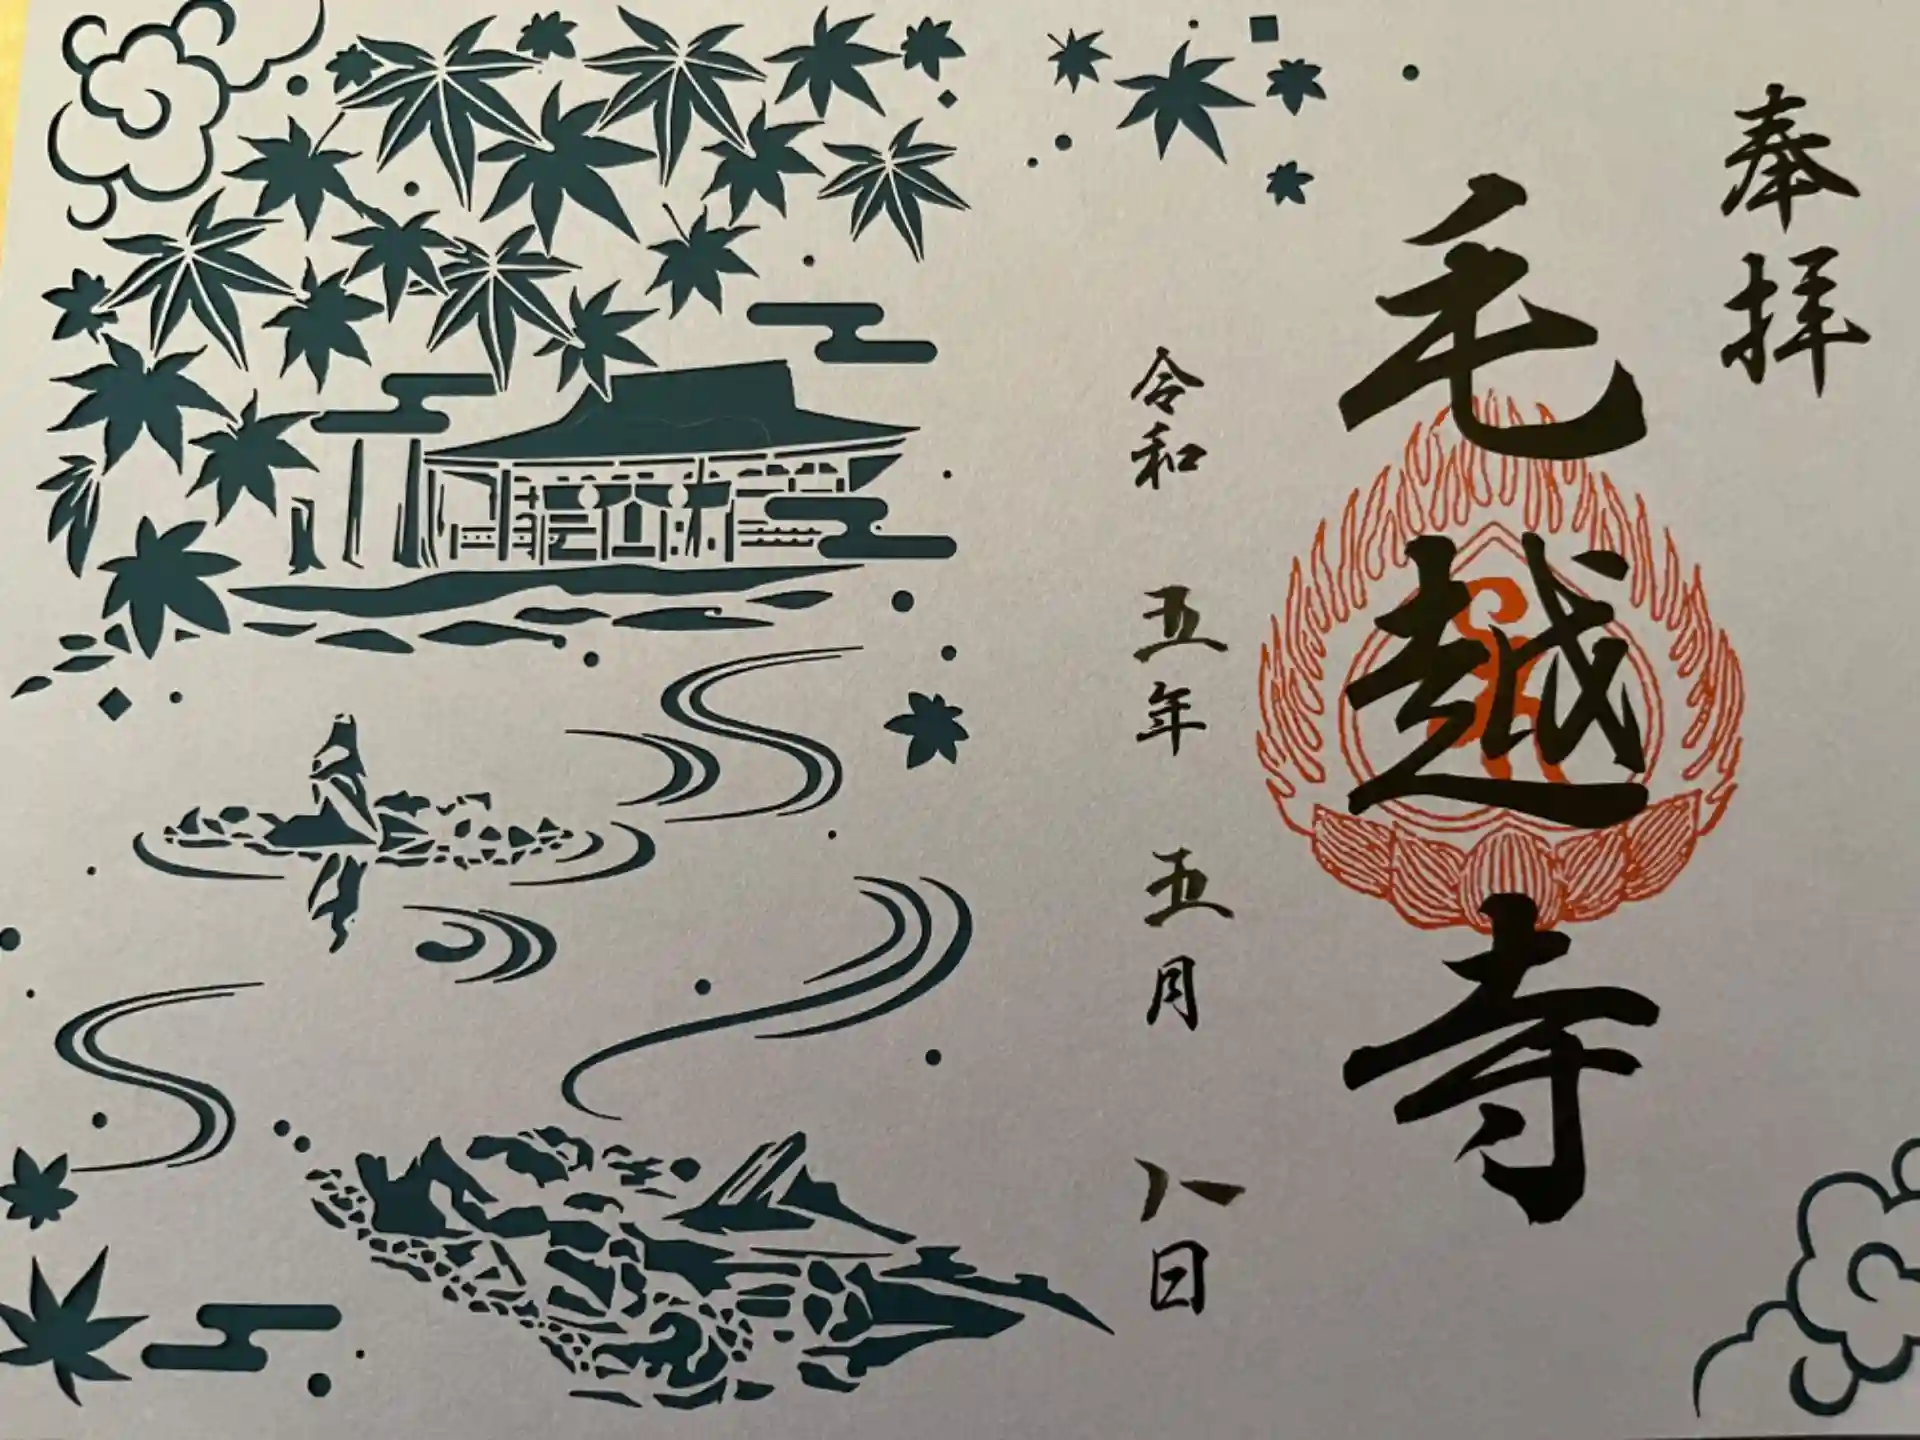 奉拝
毛越寺
令和五年五月八日